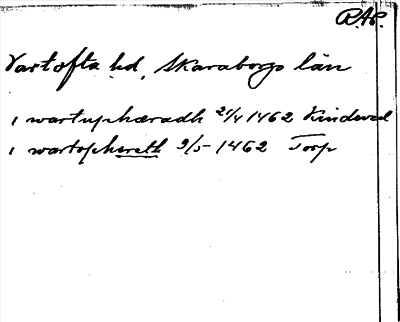 R.A.P.
Vartofta hd, Skaraborgs län
i wartuphæradh 21/4 1462 Kindeved
i wartophereth 9/5 1462 Torp